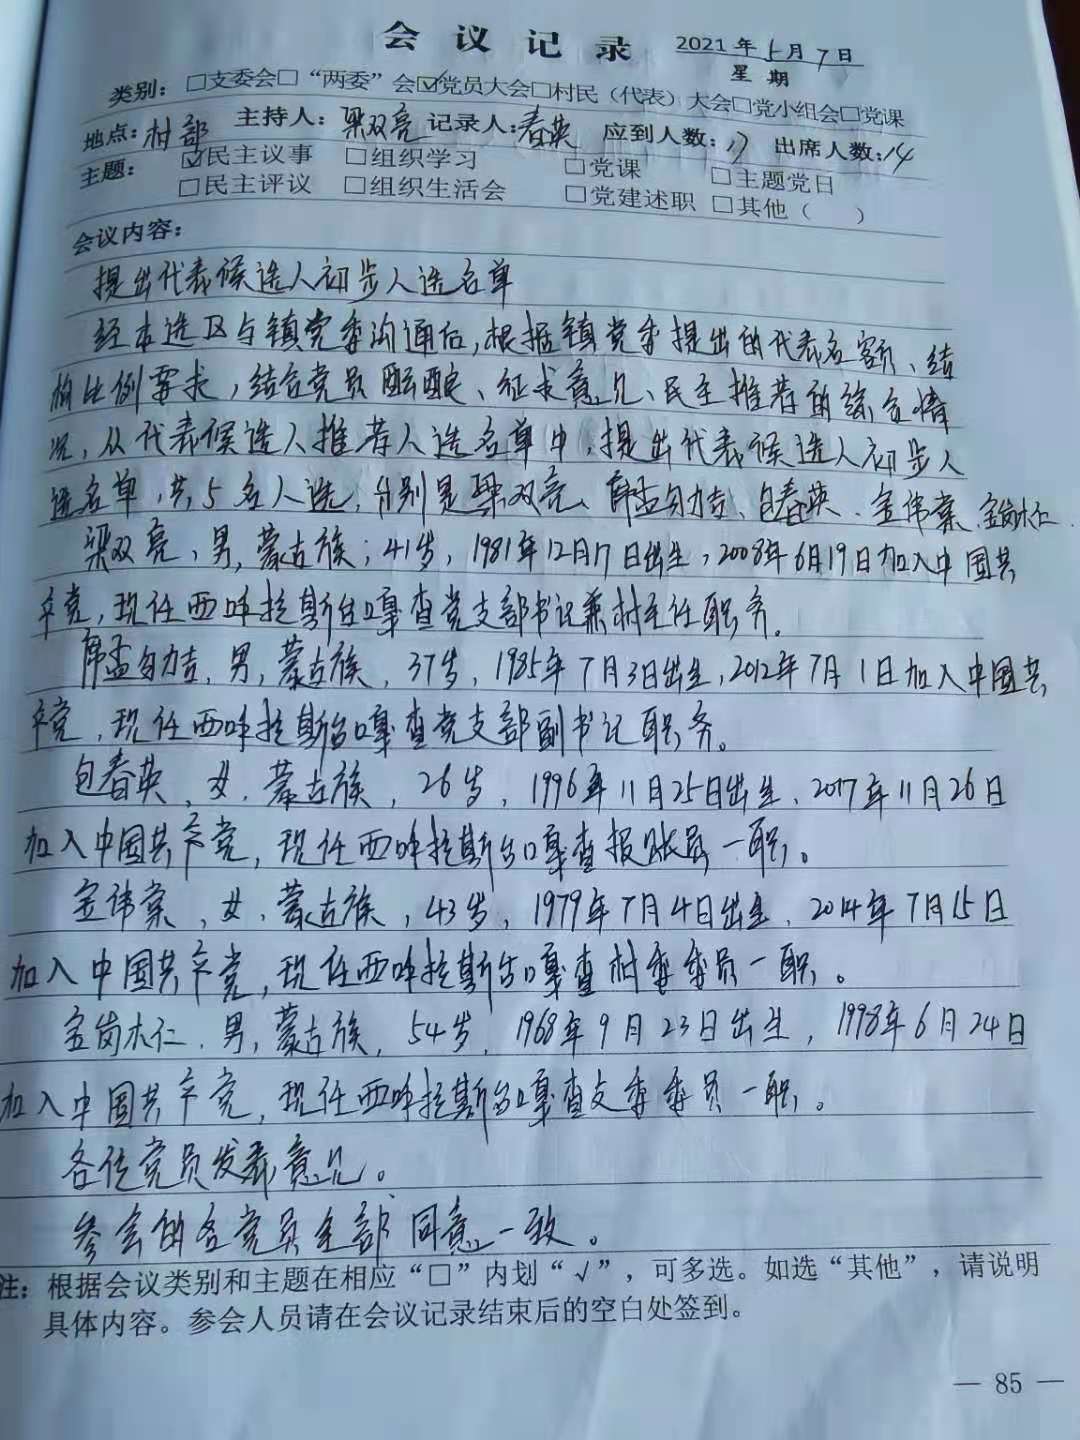 会议记录 2021年5月7日
星期
类别：□支委会□“两委”会☑党员大会□村民（代表）大会□党小组会□党课
地点：村部 主持人：梁双亮 记录人：春英 应到人数：17 出席人数：14
主题： ☑民主议事 □组织学习 □党课 □主题党日
□民主评议 □组织生活会 □党建述职 □其他（ ）
会议内容：
提出代表候选人初步人选名单
经本选区与镇党委沟通后，根据镇党委提出的代表名额、结
构比例要求，结合党员酝酿、征求意见、民主推荐的综合情
况，从代表候选人推荐人选名单中，提出代表候选人初步人
选名单，共5名人选，分别是梁双亮、席孟白力吉、包春英、金伟棠、宝岗木仁
梁双亮，男，蒙古族，41岁，1981年12月17日出生，2008年6月19日加入中国共
产党，现任西哞拉斯台嘎查党支部书记兼村主任职务。
席孟白力吉，男，蒙古族，37岁，1985年7月3日出生，2012年7月1日加入中国共
产党，现任西哞拉斯台嘎查党支部副书记职务。
包春英，女，蒙古族，26岁，1996年11月25日出生，2017年11月26日
加入中国共产党，现任西哞拉斯台嘎查报账员一职。
金伟棠，女，蒙古族，43岁，1979年7月4日出生，2014年7月15日
加入中国共产党，现任西哞拉斯台嘎查村委委员一职。
宝岗木仁，男，蒙古族，54岁，1968年9月23日出生，1998年6月24日
加入中国共产党，现任西哞拉斯台嘎查支委委员一职。
各位党员发表意见。
参会的各党员全部同意一致。
注：根据会议类别和主题在相应“□”内划“√”，可多选。如选“其他”，请说明
具体内容。参会人员请在会议记录结束后的空白处签到。
— 85 —